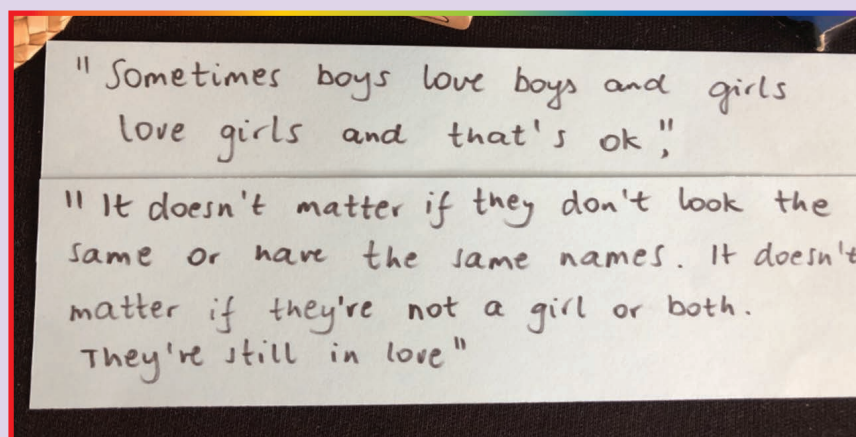 " Sometimes boys love boys and girls
love girls and that's ok ",
" It doesn't matter if they don't look the
same or have the same names. It doesn't
matter if they're not a girl or both.
They're still in love "